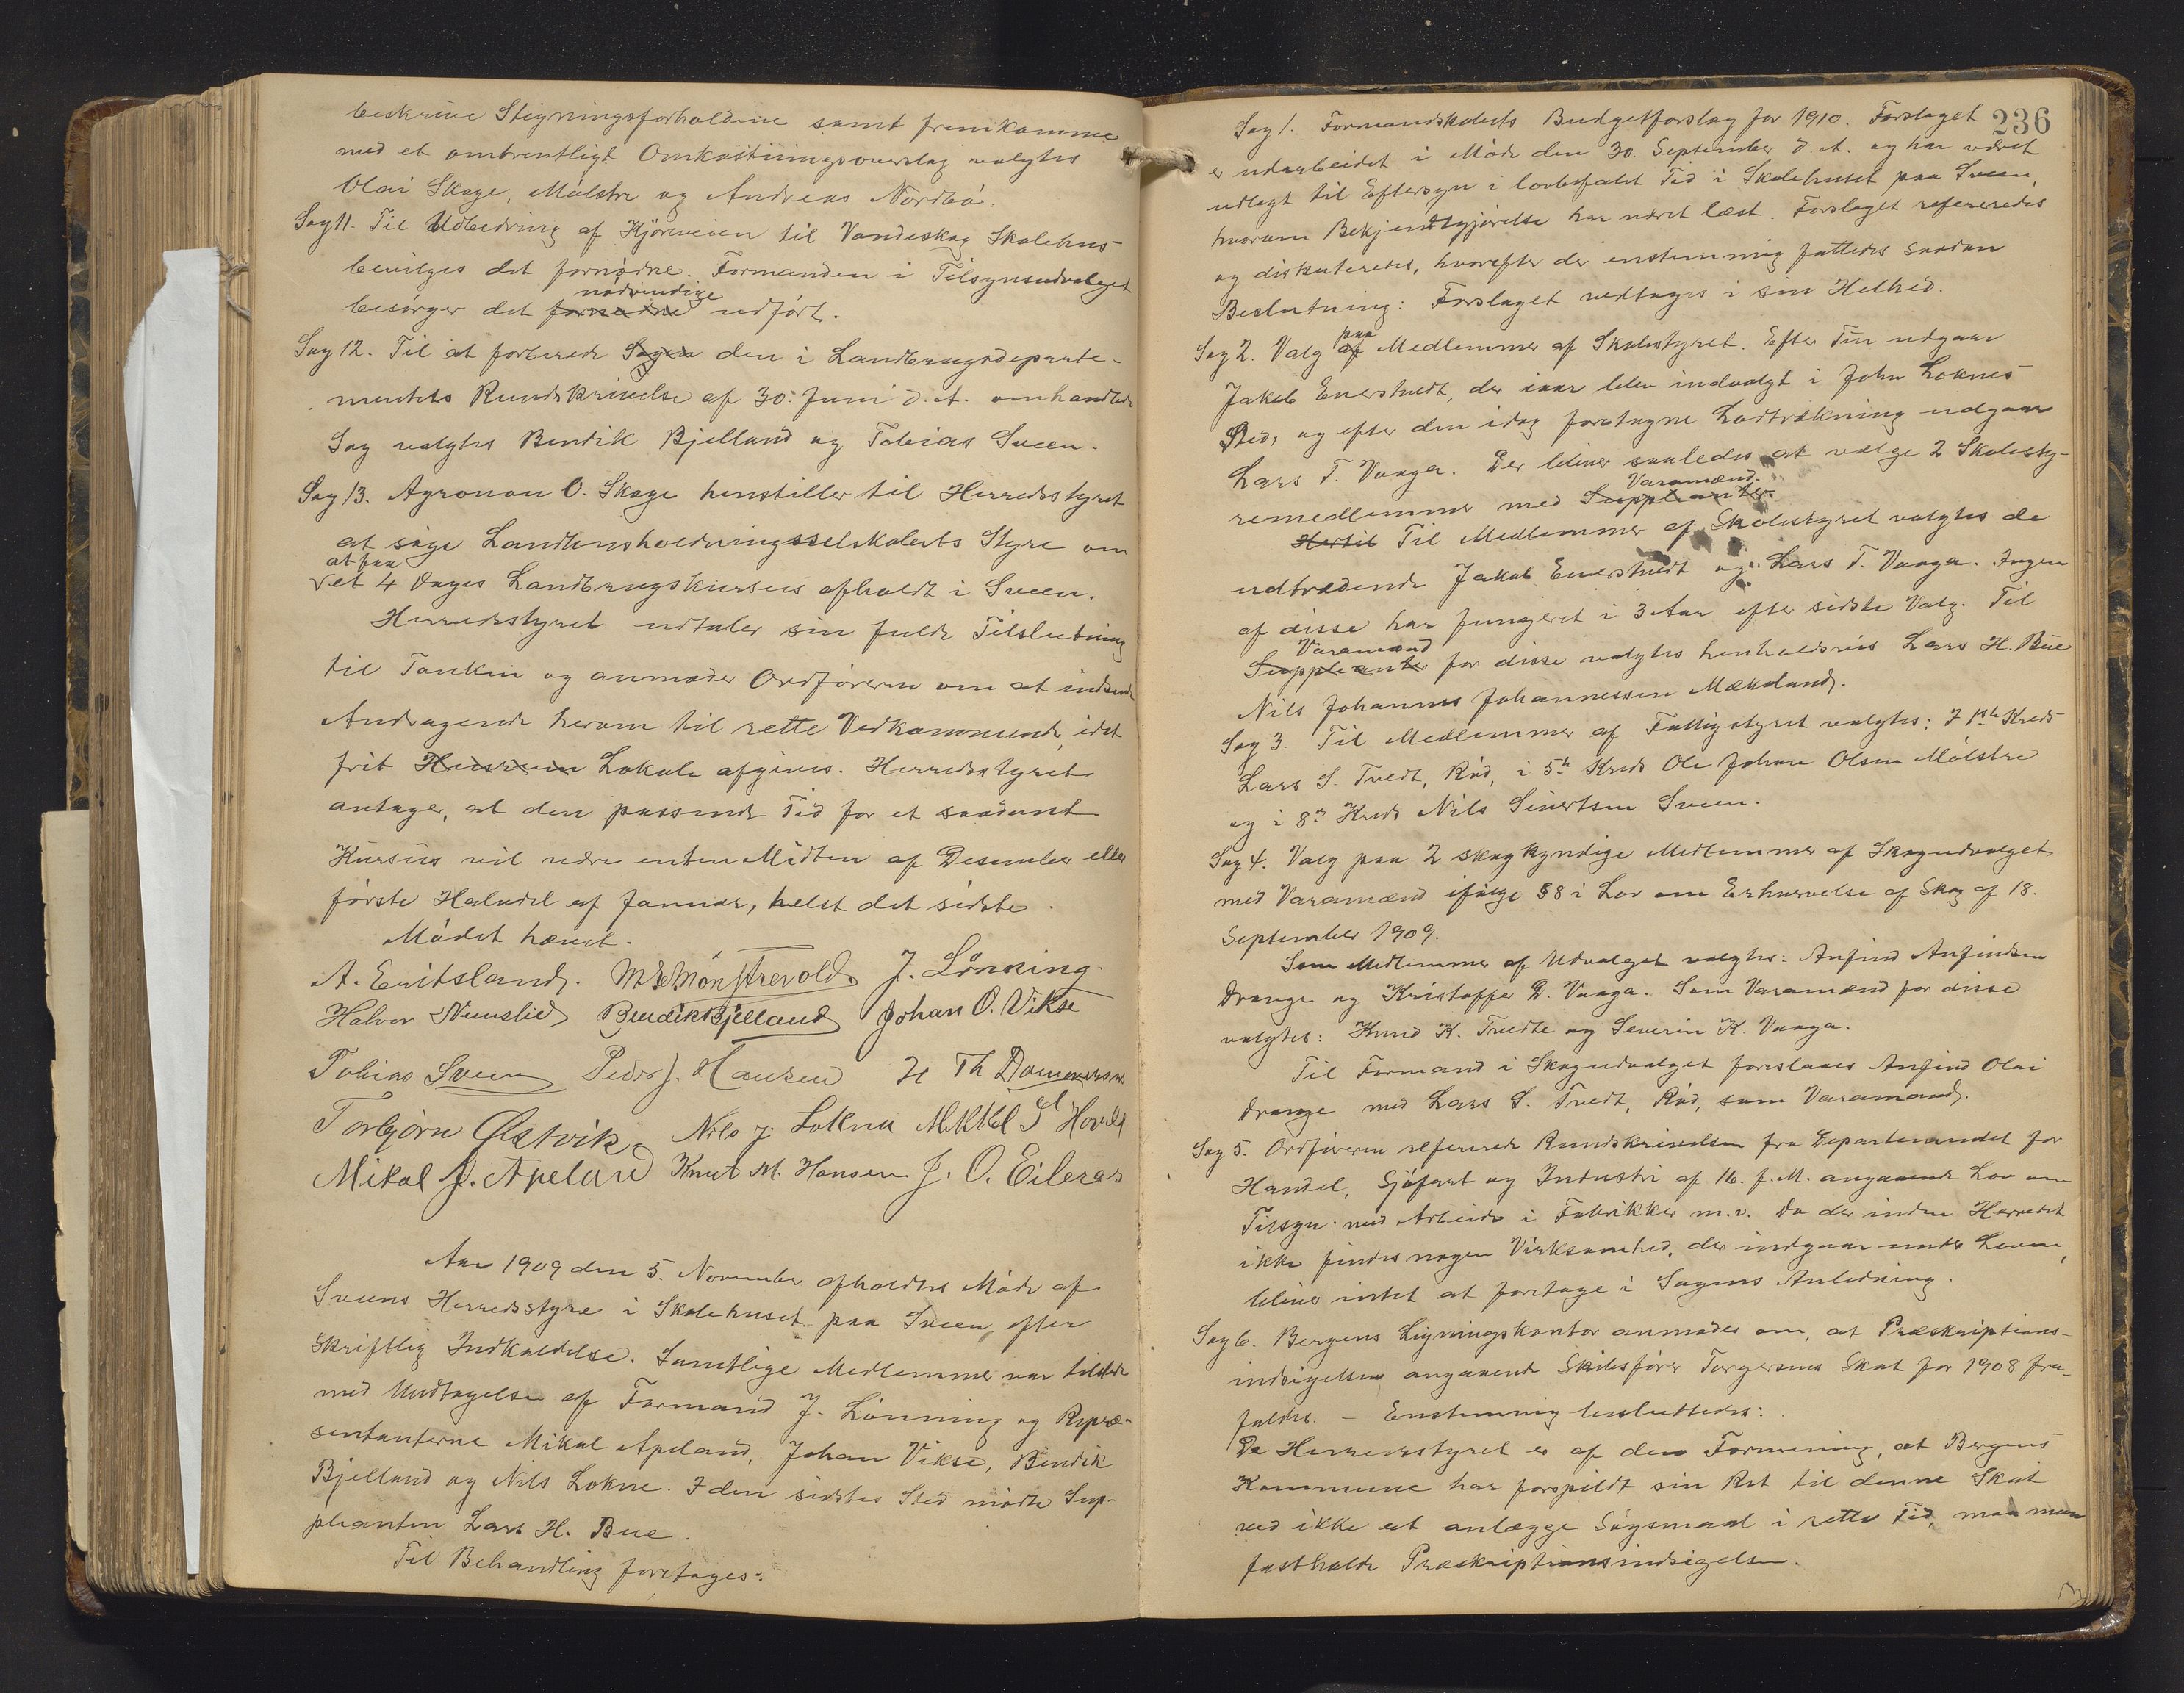 beskrive Stigningsforholdene samt fremkomme
med et ombrentligt Omkostningsoverslag valgtes
Olai Skage, Målstre og Andreas Nordbö.
Sag 11. Til Udbedring af Kjöreveien til Vandeskog Skolehus-
bevilges det fornødne. Formanden i Tilsynsudvalget
besörger det fornødne nødvendige udfört.
Sag 12. Til at forberede Sagen den i Landbrugsdeparte-
mentets Rundskrivelse af 30. Juni d. A. omhandlede
Sag valgtes Bendik Bjelland og Tobias Sveen.
Sag 13. Agronom O. Skage henstiller til Herredsstyret
at söge Landhusholdningsselskabets Styre om
at faa
et 4 Dages Landbrugskursus afholdt i Sveen.
Herredsstyret udtaler sin fulde Tilslutning
til Tanken og anmoder Ordföreren om at indsende
Andragende herom til rette Vedkommende, idet
frit Husrum Lokale afgives. Herredsstyret
antager, at den passende Tid for et saadant
Kursus vil være enten Midten af Desember eller
förste Halvdel af Januar, helst det sidste.
Mödet hævet.
A. Emitsland. M. S. Mönstrevold. J. Lönning.
Halvor Nimslid Bendik Bjelland Johan O. Vikse
Tobias Sveen Peder J. Hansen H Th Dommersnes
Torbjörn Østvik, Nils J. Lokna Mikkel Hovda
Mikal J. Apeland Knut M. Hansen J. O. Eileraas
Aar 1909 den 5. November afholdtes Möde af
Sveens Herredsstyre i Skolehuset paa Sveen, efter
Skriftlig Indkaldelse. Samtlige Medlemmer var tilstede
med Undtagelse af Formand J. Lönning og Repræ-
sentanterne Mikal Apeland, Johan Vikse, Bendik
Bjelland og Nils Lokne. I den sidstes Sted mödte Sup-
pleanten Lars H. Bue.
Til Behandling foretages:
236
Sag 1. Formandskabets Budgetforslag for 1910. Forslaget
er udarbeidet i Möde den 30. September d. A. og har været
udlagt til Eftersyn i lovbefalet Tid i Skolehuset paa Sveen,
hvorom Bekjendtgjörelse har været læst. Forslaget refereredes
og diskuteredes, hvorefter der enstemmig fattedes saadan
Beslutning: Forslaget vedtages i sin Helhed.
Sag 2. Valg af paa Medlemmer af Skolestyret. Efter Tur udgaar
Jakob Enerstvedt, der iaar blev indvalgt i John Loknes
Sted, og efter den idag foretagne Lodtrækning udgaar
Lars T. Vaaga. Der bliver saaledes at vælge 2 Skolesty-
remedlemmer med Suppleanter. Varamænd.
Hertil Til Medlemmer af Skolestyret valgtes de
udtrædende Jakob Enerstvedt og Lars T. Vaaga. Ingen
af disse har fungeret i 3 Aar efter sidste Valg. Til
Suppleanter Varamænd for disse valgtes henholdsvis Lars H. Bue
Nils Johannes Johannessen Mækeland.
Sag 3. Til Medlemmer af Fattigstyret valgtes: I 1ste Kreds
Lars S. Tvedt, Röd, i 5te Kreds Ole Johan Olsen Målstre
og i 8de Kreds Nils Sivertsen Sveen.
Sag 4. Valg paa 2 skogkyndige Medlemmer af Skogudvalget
med Varamænd ifölge § 8 i Lov om Erhvervelse af Skog af 18.
September 1909.
Som Medlemmer af Udvalget valgtes: Anfind Anfindsen
Drange og Kristoffer D. Vaaga. Som Varamænd for disse
valgtes: Knud K. Tvedte og Severin K. Vaaga.
Til Formand i Skogudvalget foreslaaes Anfind Olai
Drange med Lars S. Tvedt, Röd, som Varamand.
Sag 5. Ordföreren refererede Rundskrivelsen fra Departementet for
Handel, Sjöfart og Industri af 16. f. M. angaaende Lov om
Tilsyn med Arbeide i Fabrikker m. v. Da der inden Herredet
ikke findes nogen Virksomhed, der indgaar under Loven,
bliver intet at foretage i Sagens Anledning.
Sag 6. Bergens Ligningskontor anmoder om, at Præskriptions-
indsigelsen angaaende Skibsförer Torgersens Skat for 1908 fra-
faldes. - Enstemmig besluttedes:
Da Herredsstyret er af den Formening, at Bergens
Kommune har forspildt sin Ret til denne Skat
ved ikke at anlægge Sögsmaal i rette Tid, maa man
fastholde Præskriptionsindsigelsen.